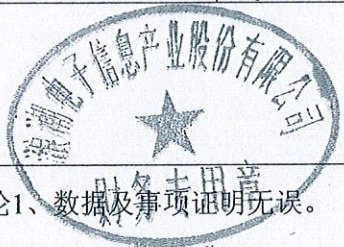 浪潮电子信息产业股份有限公司
财务专用章
论1、数据及事项证明无误。